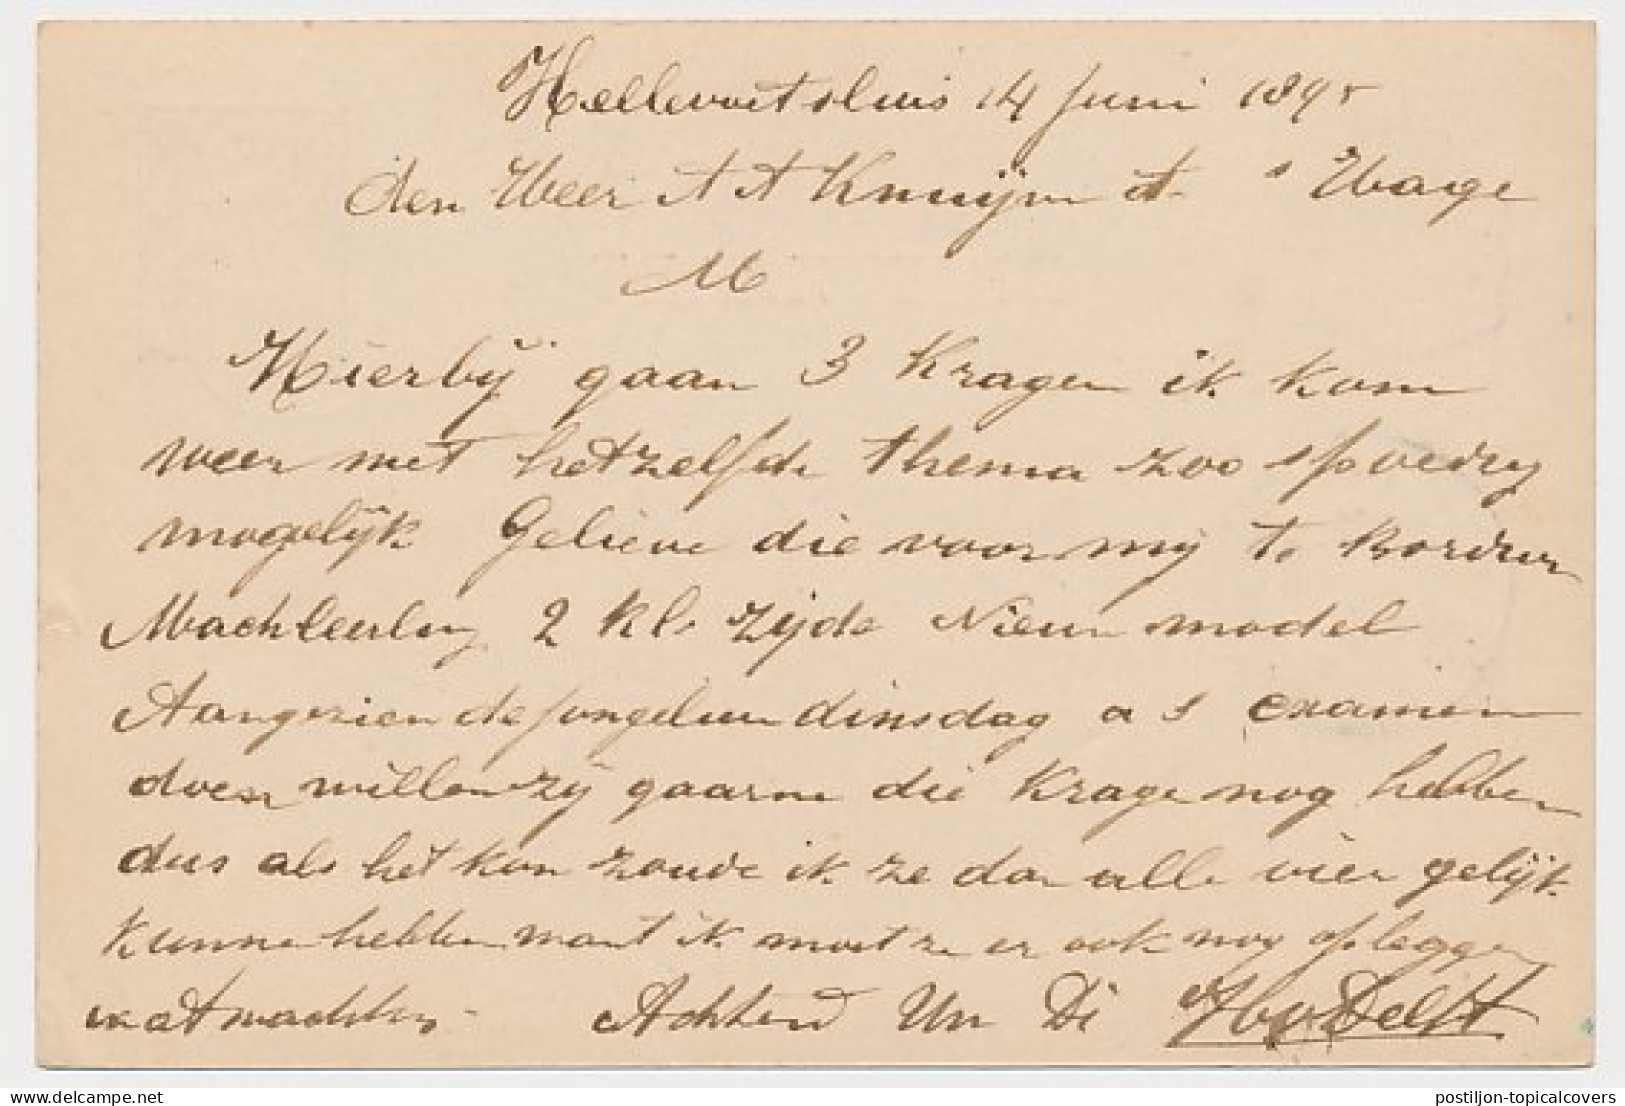 Hellevoetsluis 14 Juni 1895
den Heer A A Knuijm 's Hage
M
Hierbij gaan 3 Kragen ik kom
weer met hetzelfde thema zoo spoedig
mogelijk Gelieve die voor mij te Borduren
2 kl zijde Nieuw model
Aangezien de jongelieden dinsdag a s examen
doen willen zij gaarne die Krage nog hebben
dus als het kon zoude ik ze dan alle vier gelijk
kunne hebben want ik moet ze er ook nog opleggen
Achtend Uw Di H v Delft
postiljon-topicalcovers
www.delcampe.net